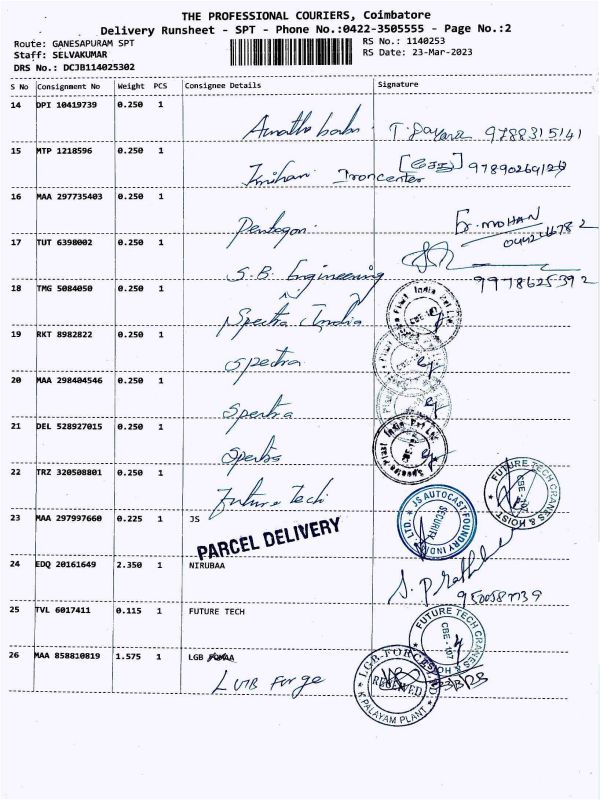 THE PROFESSIONAL COURIERS, Coimbatore
Delivery Runsheet - SPT - Phone No.:0422-3505555 - Page No.:2
Route: GANESAPURAM SPT RS No.: 1140253
Staff: SELVAKUMAR RS Date: 23-Mar-2023
DRS No.: DCJB114025302
S No Consignment No Weight PCS Consignee Details Signature
14 DPI 10419739 0.250 1
9788315141
15 MTP 1218596 0.250 1
Ironcenter
16 MAA 297735403 0.250 1
Pentagon
MOHAN
17 TUT 6398002 0.250 1
S.B. Engineering
9978625392
18 TMG 5084050 0.250 1
Spectra India
Spectra Plast India Pvt Ltd
19 RKT 8982822 0.250 1
Spectra
20 MAA 298404546 0.250 1
Spectra
21 DEL 528927015 0.250 1
Spectra Plast India Pvt Ltd
22 TRZ 320508801 0.250 1
Future Tech
FUTURE TECH CRANES & HOIST CBE-107
23 MAA 297997660 0.225 1 JS
JS AUTOCAST FOUNDRY INDIA LTD. SECURITY
PARCEL DELIVERY
24 EDQ 20161649 2.350 1 NIRUBAA
25 TVL 6017411 0.115 1 FUTURE TECH
FUTURE TECH CRANES & HOIST CBE-107
26 MAA 858810819 1.575 1 LGB
Forge
LGB FORGE LTD RECEIVED K PALAYAM PLANT